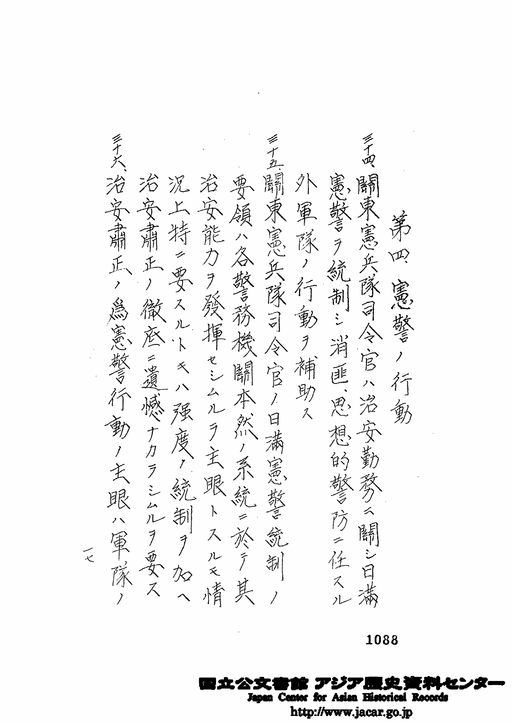 第四、憲警ノ行動
三十四、關東憲兵隊司令官ハ治安勤務ニ關シ日滿
憲警ヲ統制シ消匪、思想的警防ニ任スル
外軍隊ノ行動ヲ補助ス
三十五、關東憲兵隊司令官ノ日滿憲警統制ノ
要領ハ各警務機關本然ノ系統ニ於テ其
治安能力ヲ發揮セシムルヲ主眼トスルモ情
況上特ニ要スルトキハ强度ノ統制ヲ加ヘ
治安肅正ノ徹底ニ遺憾ナカラシムルヲ要ス
三十六、治安肅正ノ爲憲警行動ノ主眼ハ軍隊ノ
一七
1088
国立公文書館 アジア歴史資料センター
Japan Center for Asian Historical Records
http://www.jacar.go.jp